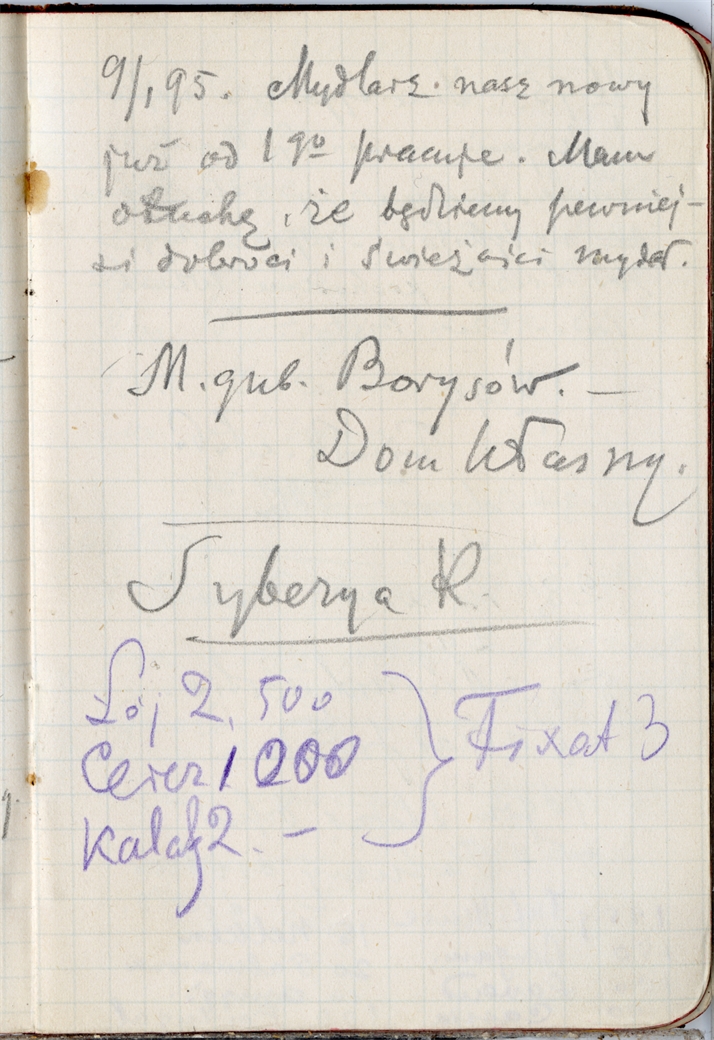 9/I 95. Mydlarz nasz nowy
już od 1go pracuje. Mam
otuchę, że będziemy pewniej-
si dobroci i świeżości mydeł.
M. gub. Borysów. —
Dom Własny.
Syberya R.
Łój 2. 500
Ceier 1 200
Kalafj 2. —
Fixat 3